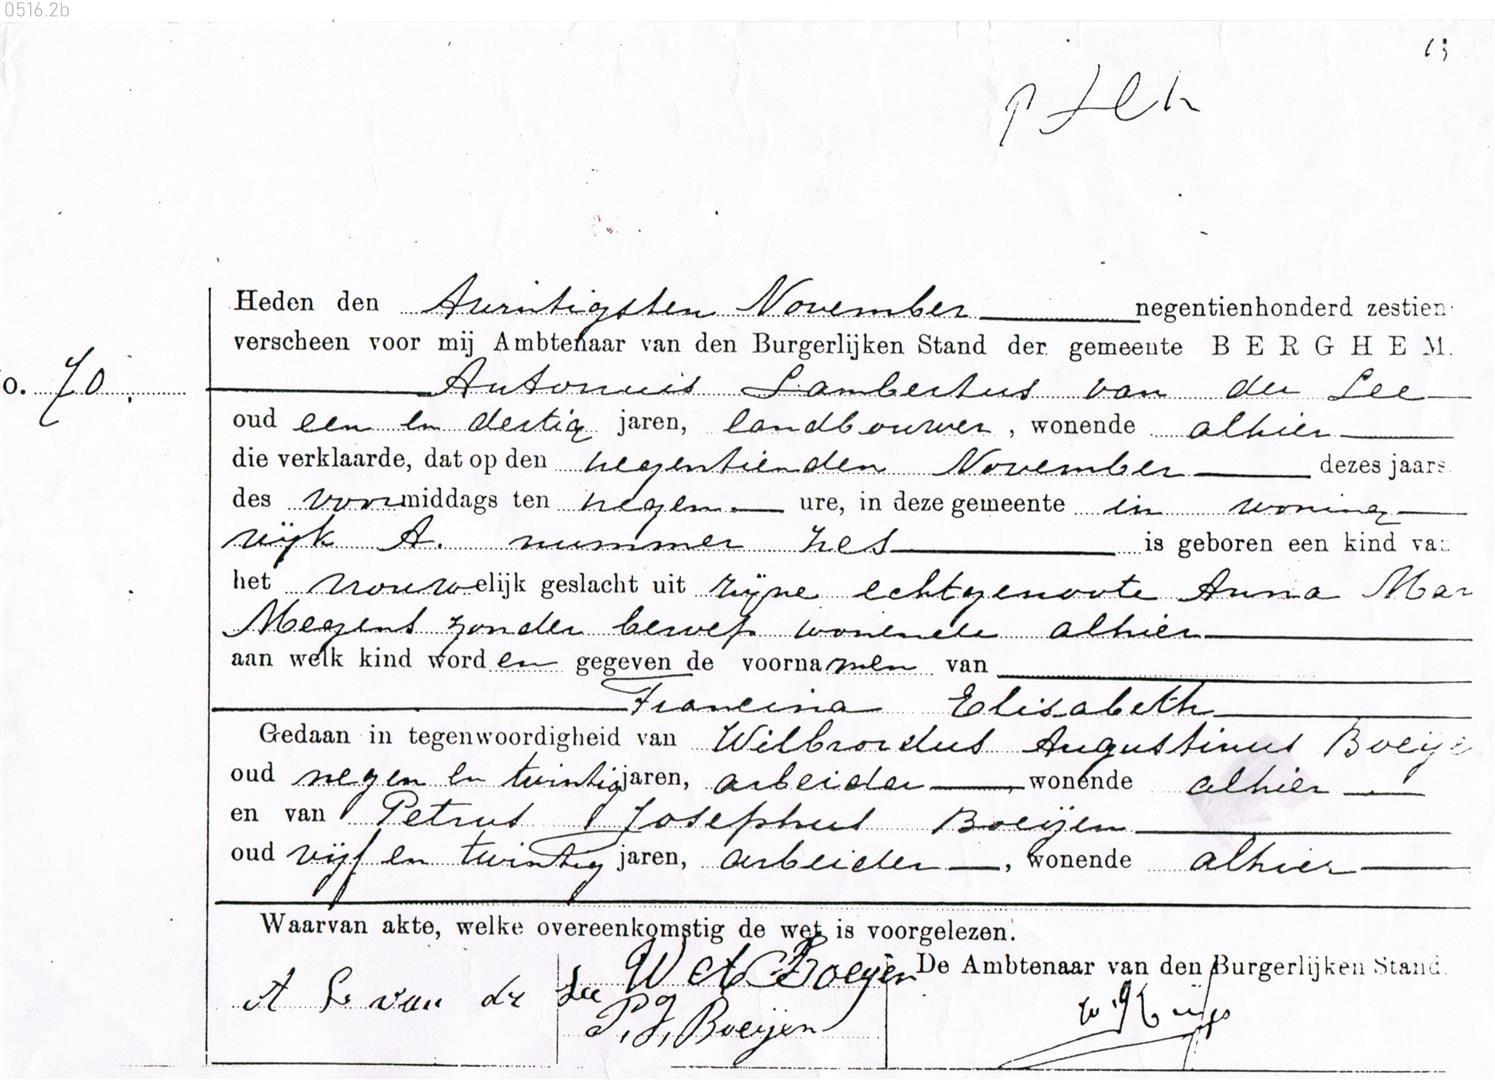 0516.2b
13
Heden den twintigsten November negentienhonderd zestien
verscheen voor mij Ambtenaar van den Burgerlijken Stand der gemeente BERGHEM.
o. 70
Antonius Lambertus van der Lee
oud een en dertig jaren, landbouwer, wonende alhier
die verklaarde, dat op den negentienden November dezes jaars
des voormiddags ten negen ure, in deze gemeente in woning
wijk A. nummer zes is geboren een kind va
het vrouwelijk geslacht uit zijne echtgenoote Anna Mar
Megens zonder beroep wonende alhier
aan welk kind worden gegeven de voornamen van
Francina Elisabeth
Gedaan in tegenwoordigheid van Wilbrordus Augustinus Boeije
oud negen en twintig jaren, arbeider, wonende alhier
en van Petrus Josephus Boeijen
oud vijf en twintig jaren, arbeider, wonende alhier
Waarvan akte, welke overeenkomstig de wet is voorgelezen.
A L van der Lee W A Boeijen De Ambtenaar van den Burgerlijken Stand.
P. J. Boeijen